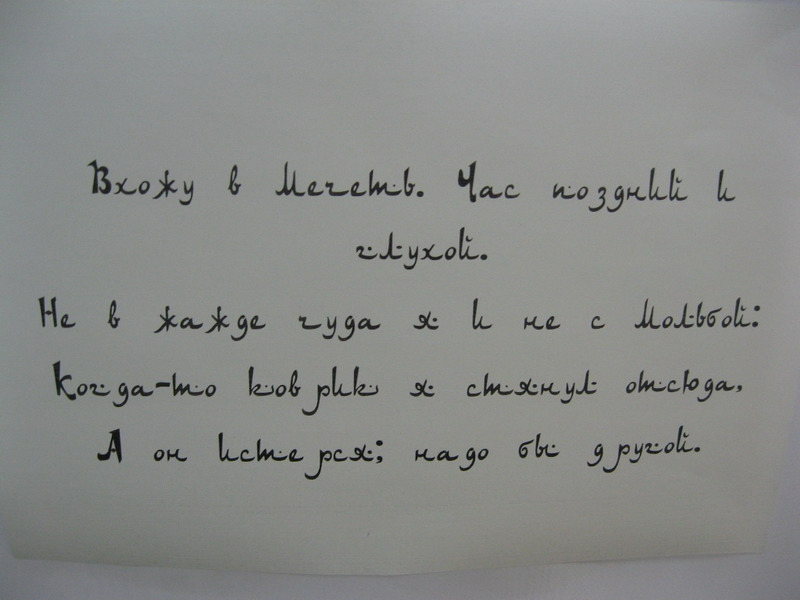 Вхожу в мечеть. Час поздний и
глухой.
Не в жажде чуда я и не с мольбой:
Когда-то коврик я стянул отсюда,
А он истерся; надо бы другой.